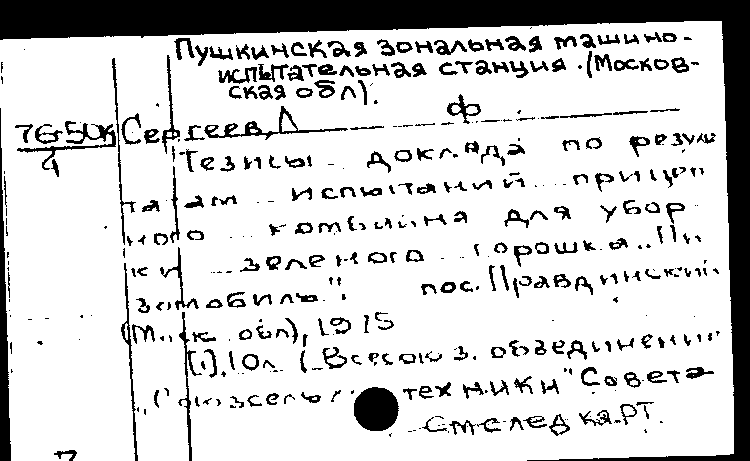 Пушкинская зональная машино-
испытательная станция. (Москов-
ская обл).
ф
76-50к Сергеев, Л
4
Тезисы доклада по резуль
татам испытаний прицеп
ного комбайна для убор
ки зеленого горошка "Пи
замобиль". пос. Правдинский
(Моск. обл), 1975
[1], 10л (Всесоюз. объединение
"Союзсельхозтехники" Совета
См след карт.